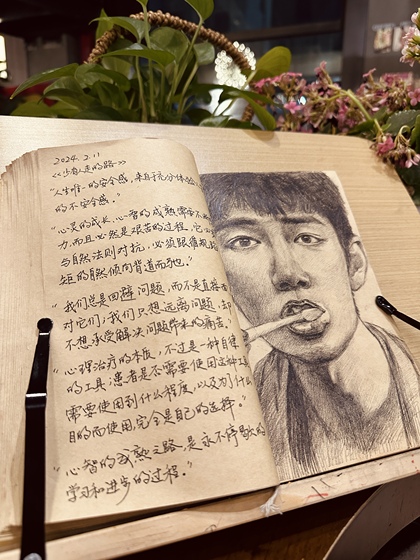 2024. 2. 11
《少有人走的路》
"人生唯一的安全感，来自于充分体验人
的不安全感。"
"心灵的成长，心智的成熟需要不
力，而且必然是艰苦的过程，它
与自然法则对抗，必须跟
矩的自然倾向背道而驰。"
"我们总是回避问题，而不是直接面
对它们；我们只想远离问题，却
不想承受解决问题带来的痛苦。"
"心理治疗的本质，不过是一种自律
的工具，患者是否需要使用这种工
需要使用到什么程度，以及为什么
目的而使用，完全是自己的选择。"
"心智的成熟之路，是永不停歇的
学习和进步的过程。"